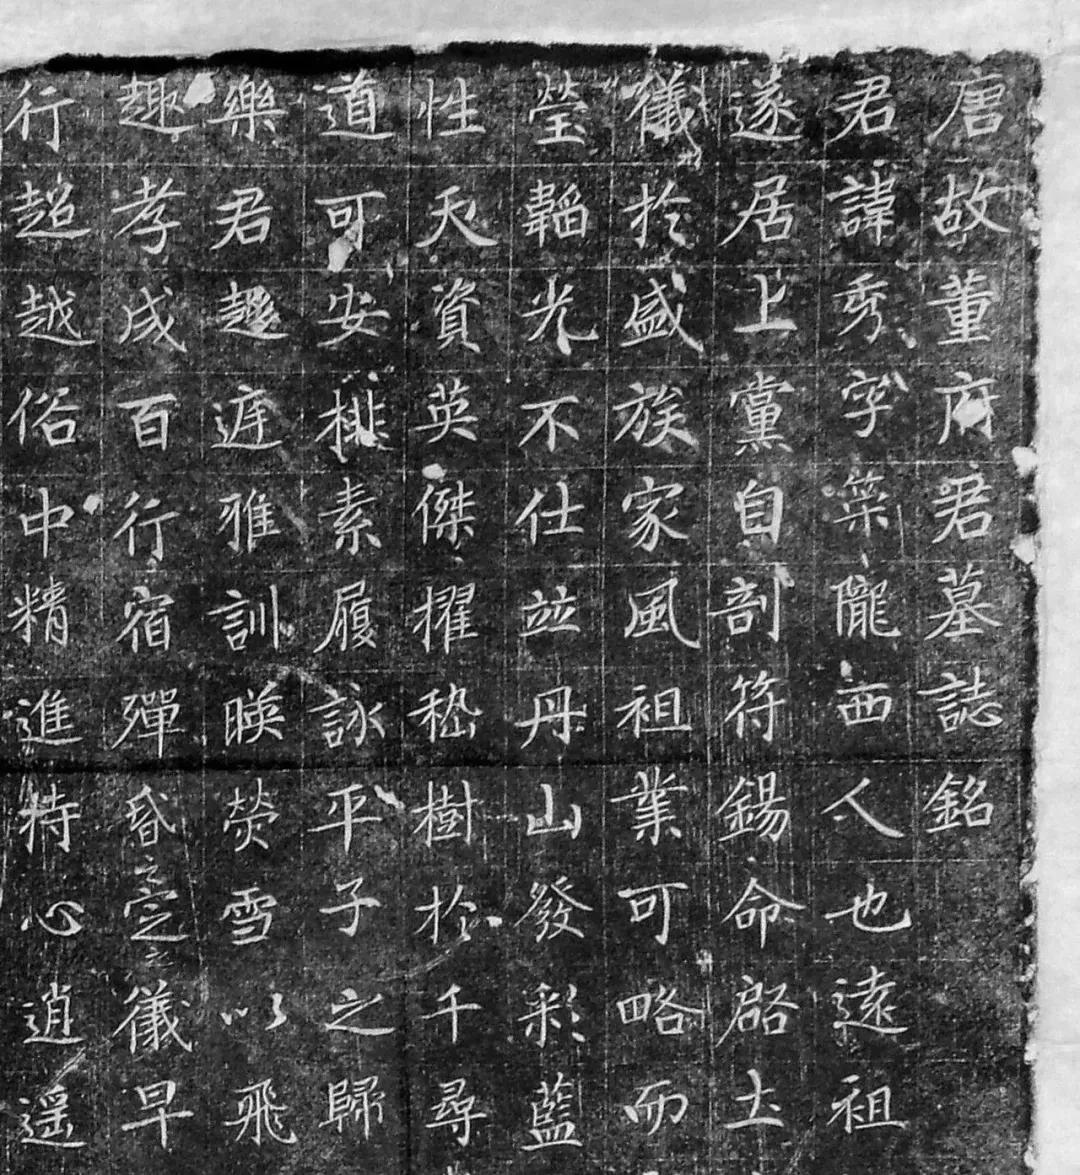 唐故董府君墓誌銘
君諱秀字榮隴西人也遠祖
遂居上黨自剖符錫命啓土
儀於盛族家風祖業可略而
瑩韜光不仕並丹山發彩藍
性天資英傑擢嵇樹於千尋
道可安棑素履詠平子之歸
樂君趍遊雅訓暎熒雪以飛
趣孝成百行宿殫昏之儀早
行超越俗中精進持心逍遥